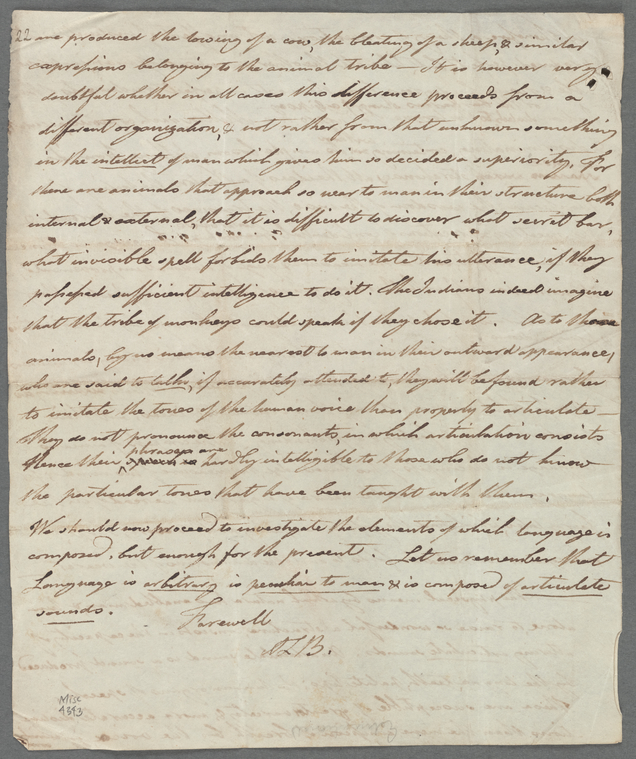 22 are produced the lowing of a cow, the bleating of a sheep, & similar
expressions belonging to the animal tribe — It is however very
doubtful whether in all cases this difference proceeds from a
different organization, & not rather from that unknown something
in the intellect of man which gives him so decided a superiority. For
there are animals that approach so near to man in their structure both
internal & external, that it is difficult to discover what secret bar,
what invisible spell forbids them to imitate his utterance, if they
possessed sufficient intelligence to do it. The Indians indeed imagine
that the tribe of monkeys could speak if they chose it. As to those
animals, by no means the nearest to man in their outward appearance,
who are said to talk, if accurately attended to, they will be found rather
to imitate the tones of the human voice than properly to articulate —
They do not pronounce the consonants, in which articulation consists
phrases are
Hence their speech is hardly intelligible to those who do not know
the particular tones that have been taught with them.
We should now proceed to investigate the elements of which language is
composed, but enough for the present. Let us remember that
Language is arbitrary is peculiar to man & is composed of articulate
sounds. Farewell
ALB.
Misc
4343